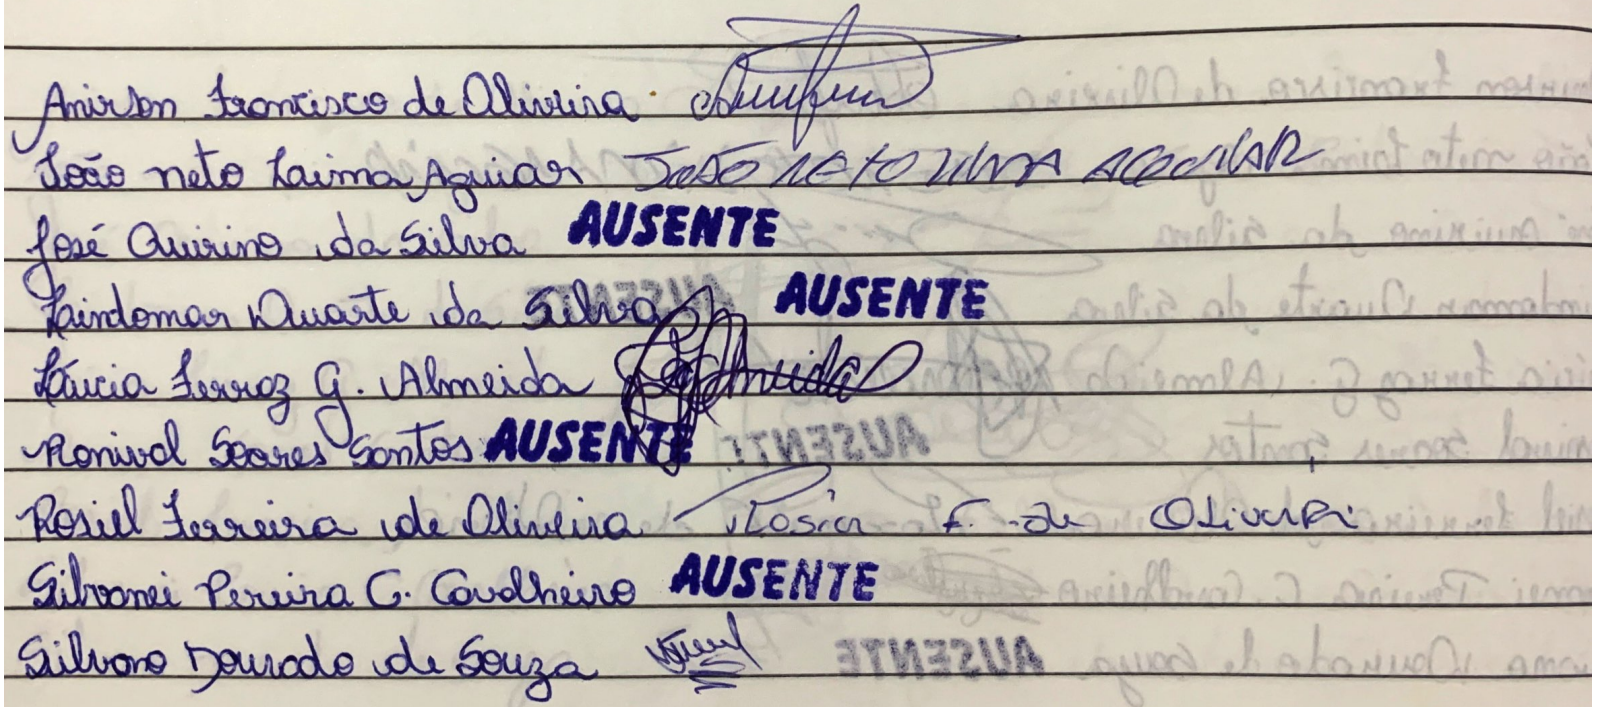 Anirson Francisco de Oliveira
João neto Laima Aguiar JOÃO NETO LIMA AGUIAR
José Quirino da Silva AUSENTE
Laindomar Duarte da Silva AUSENTE
Láucia Ferraz G. Almeida Almeida
Ronival Soares Santos AUSENTE
Rosiel Ferreira de Oliveira F. de Oliveira
Gilvanei Pereira C. Cavalheiro AUSENTE
Silvano Dourado de Souza